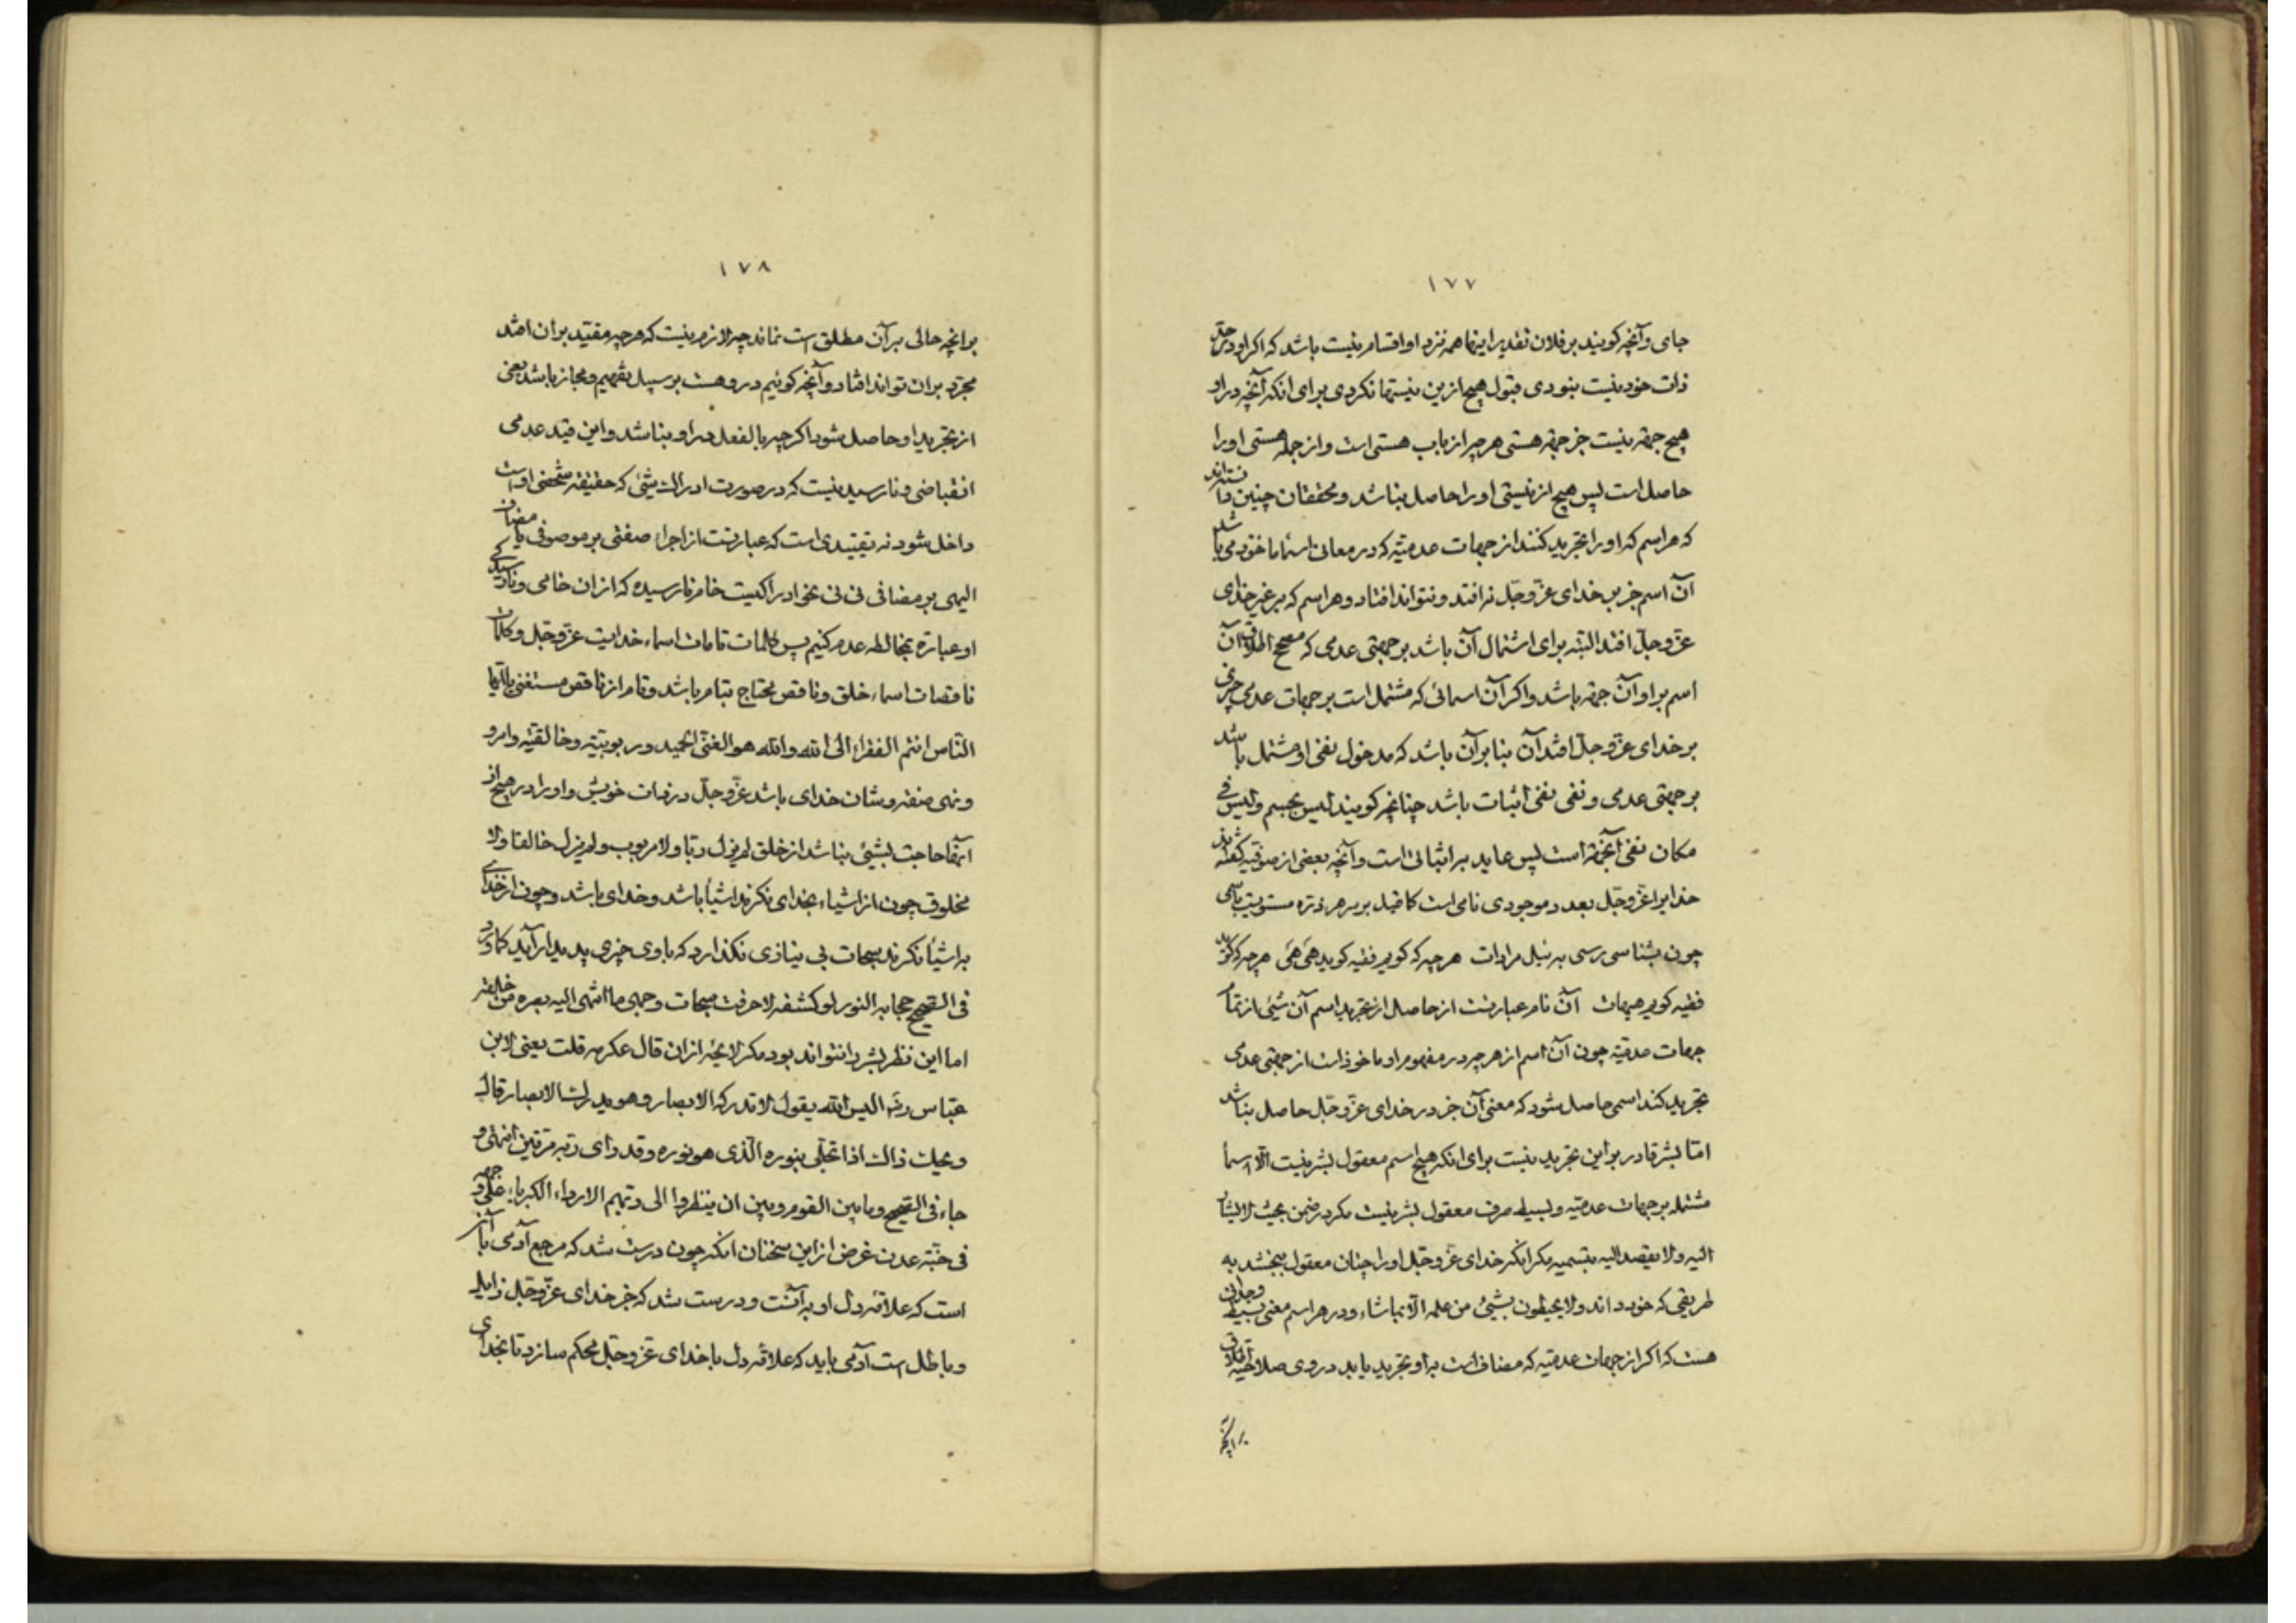 ۱۷۷
جای وآنچه کویند بر فلان تقدیر اینها همه نزد او اقسام نیست باشد که اکر او در حق
ذات خود نیست نبودی قبول هیچ ازین نیستها نکردی برای انکه آنچه در او
هیچ جهة نیست جز جهة هستی هر چه از باب هستی است واز جمله هستی اورا
حاصل است پس هیچ از نیستی اورا حاصل نباشد ومحققان چنین دانسته‌اند
که هر اسم که اورا تجرید کنند از جهات عدمیّه که در معانی اسما ماخوذ می باشد
آن اسم جز بر خدای عزّ وجلّ نه افتد ونتواند افتاد وهر اسم که بر غیر خدای
عزّ وجلّ افتد البتّه برای اشتمال آن باشد بر جهتی عدمی که مصحح اطلاق آن
اسم بر او آن جهة باشد واکر آن اسمائی که مشتمل است بر جهات عدمی چیزی
بر خدای عزّ وجلّ افتد آن بنا بر آن باشد که مدخول نفی او مشتمل باشد
بر جهتی عدمی ونفی نفی اثبات باشد چنانچه کویند لیس بجسم ولیس فی
مکان نفی است پس عاید بر اثباتی است وآنچه بعضی از صوفیه کفته‌اند
خدایرا عزّ وجلّ بعدد موجودی نامی است کما قیل بر سر هر ذره مستویت باسمی
چون بشناسی رسی به نیل مرادات هر چه که کویم فقیه کوید هی هی هر چه که کوید
فقیه کویم هیهات آن نام عبارتست از حاصل از تجرید اسم آن شیئی از تمام
جهات عدمیّه چون آن اسم از هر چه در مفهوم او ماخوذ است از جهتی عدمی
تجرید کند اسمی حاصل شود که معنی آن جز در خدای عزّ وجلّ حاصل نباشد
امّا بشر قادر بر این تجرید نیست برای انکه هیچ اسم معقول بشر نیست الّا اسمآ
مشتمله بر جهات عدمیّه وبسیط صرف معقول بشر نیست مکر در ضمن بحیث لا یشار
الیه ولا یقصد الیه بتسمیه مکر انکه خدای عزّ وجلّ اورا چنان معقول ببخشد به
طریقی که خود داند ولا یحیطون بشیئ من علمه الّا بما شاء ودر هر اسم معنی بسیط وجدانی
هست که اکر از جهات عدمیّه که مضاف است به او تجرید یابد در وی صلاحیّه اطلاق
بر انچه
۱۷۸
بر انچه حالی بر آن مطلق است نماند چه لازم نیست که هر چه مقیّد بر ان افتد
مجرّد بر ان تواند افتاد وآنچه کوئیم در وهست بر سبیل تفهیم ومجاز باشد یعنی
از تجرید او حاصل شود اکر چه بالفعل در او نباشد واین قید عدمی
انقباضی ونارسیدنیست که در صورت ادراک شیئی که حقیقة شخصی اوست
داخل شود نه تقییدی است که عبارتست از اجراء صفتی بر موصوفی یا مضاف
الیهی بر مضافی نی نی بخواد راکیست خام نارسیده که از ان خامی ونارسیدکی
او عبارة بمخالطه عدم کنیم پس کلمات تامات اسماء خدایست عزّ وجلّ وکلمات
ناقصات اسماء خلق وناقص محتاج بتام باشد وتام از ناقص مستغنی یا ایّها
النّاس انتم الفقراء الی الله والله هو الغنیّ الحمید وربوبیّته وخالقیّه وامر و
ونهی صفه وشان خدای باشد عزّ وجلّ در ذات خویش واورا در هیچ از
آنها حاجت بشیئی نباشد از خلق لم یزل ربّا ولا مربوب ولم یزل خالقا ولا
مخلوق چون از اشیاء بخدای نکرند اشیآ باشد وخدای باشد وچون از خدای
به اشیآ نکرند سبحات بی نیازی نکذارد که با وی چیزی پدیدار آید کما ورد
فی الصّحیح حجابه النور لو کشفه لاحرقت سبحات وجهی ما انتهی الیه بصره من خلقه
اما این نظر بشر را نتواند بود مکر لایحه از ان قال عکرمه قلت یعنی لابن
عبّاس رضه الیس الله یقول لا تدرکه الابصار وهو یدرک الابصار قال
ویحک ذاک اذا تجلّی بنوره الّذی هو نوره وقد رای ربّه مرّتین انتهی و
جاء فی الصّحیح وما بین القوم وبین ان ینظروا الی ربّهم الا رداء الکبریاء علی وجهه
فی جنّة عدن غرض از این سخنان انکه چون درست شد که مرجع آدمی با آن
است که علاقهٔ دل او به آنست ودرست شد که جز خدای عزّ وجلّ زایل
وباطل است آدمی باید که علاقهٔ دل با خدای عزّ وجلّ محکم سازد تا بخدای